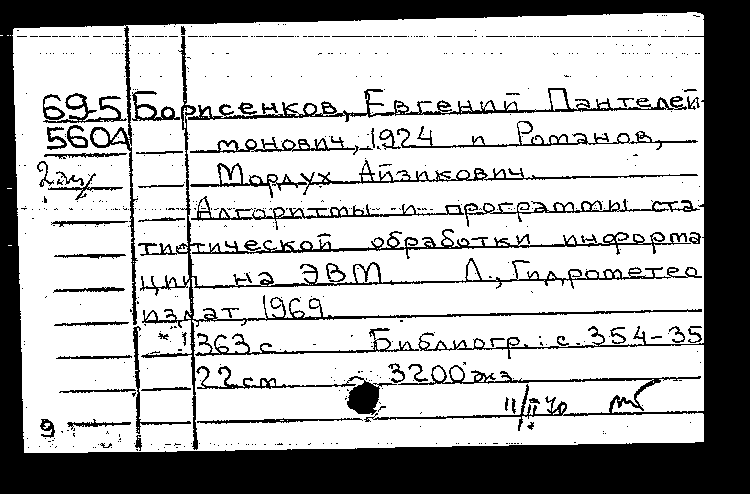 69-5 Борисенков, Евгений Пантелей-
5604 монович, 1924 и Романов,
2 экз Мордух Айзикович.
Алгоритмы и программы ста-
тистической обработки информа
ции на ЭВМ. Л., Гидрометео
издат, 1969.
363 с. Библиогр.: с. 354-35
22 см. 3200 экз.
11/II 70
9